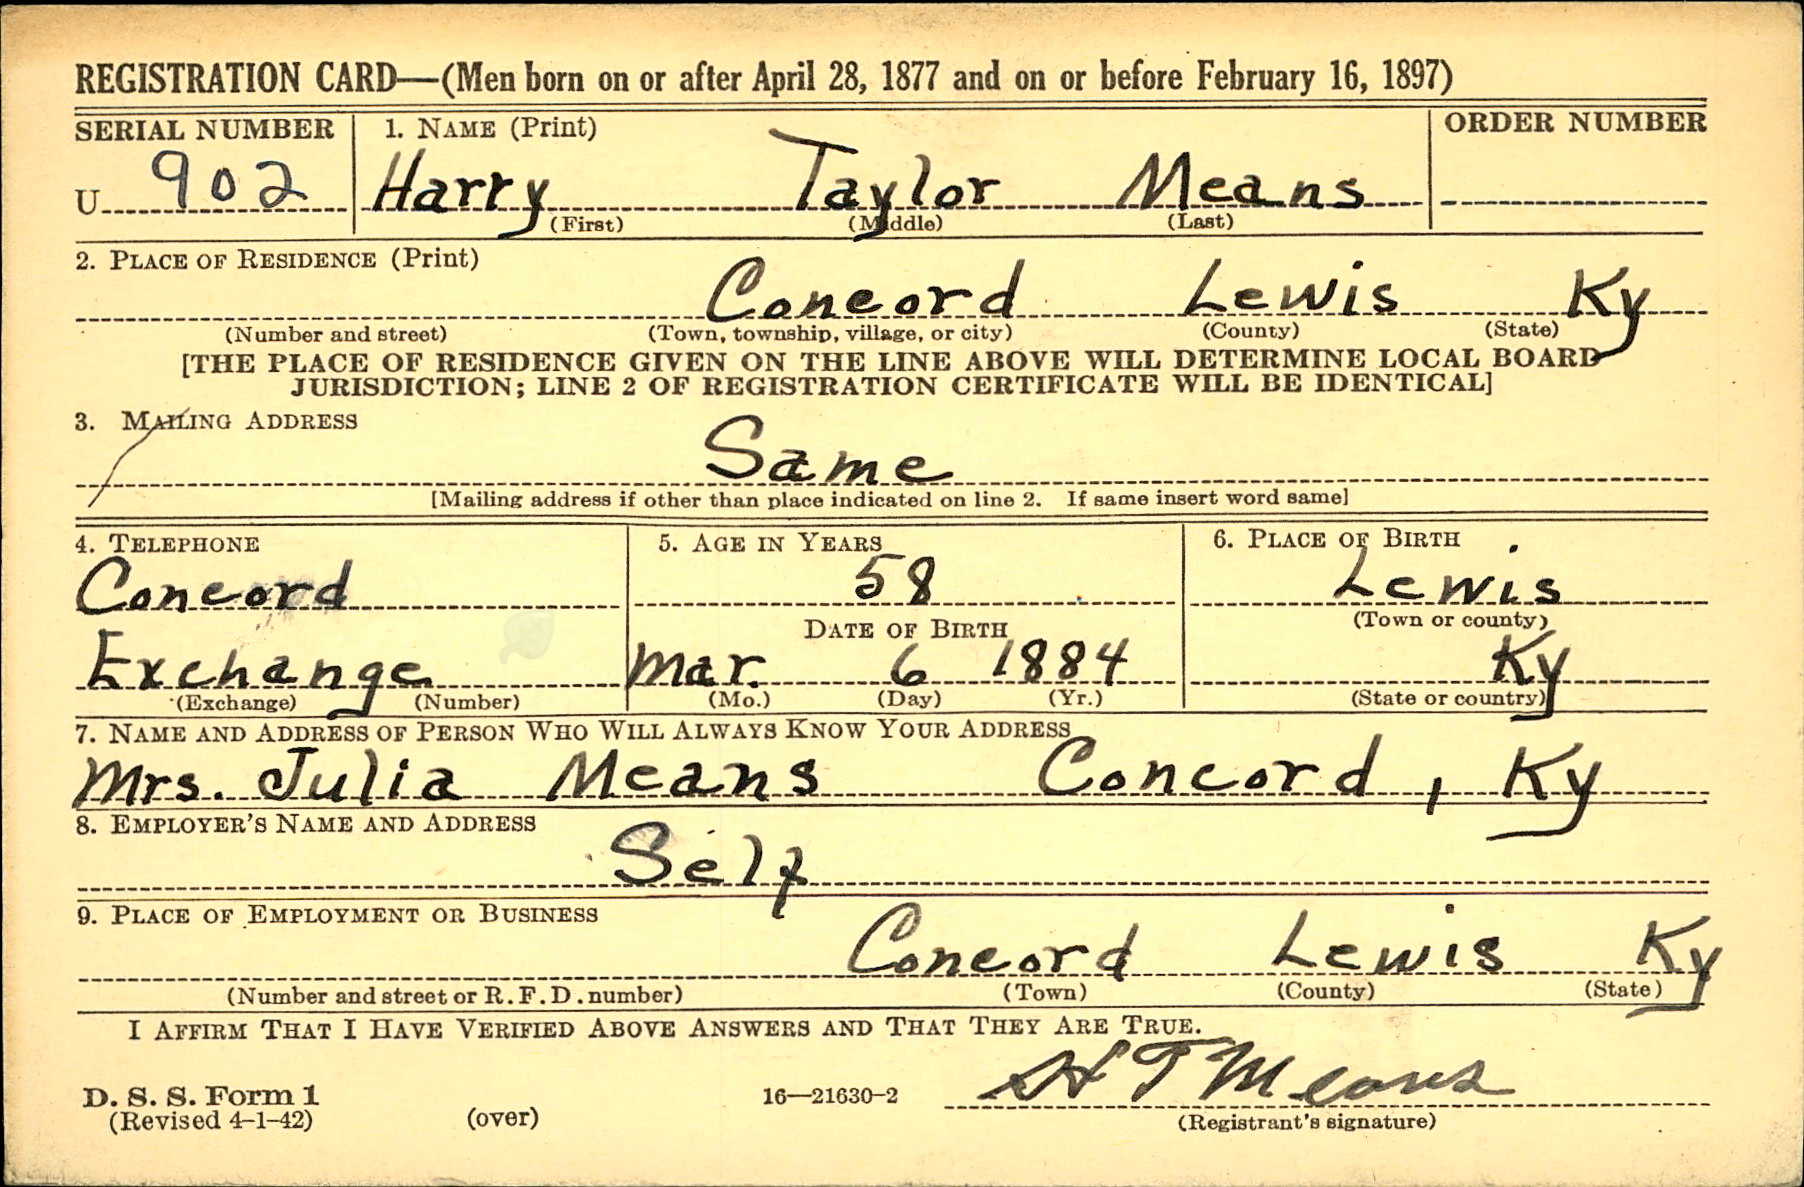 REGISTRATION CARD—(Men born on or after April 28, 1877 and on or before February 16, 1897)
SERIAL NUMBER 1. NAME (Print) ORDER NUMBER
U 902 Harry Taylor Means
(First) (Middle) (Last)
2. PLACE OF RESIDENCE (Print)
Concord Lewis Ky
(Number and street) (Town, township, village, or city) (County) (State)
[THE PLACE OF RESIDENCE GIVEN ON THE LINE ABOVE WILL DETERMINE LOCAL BOARD
JURISDICTION; LINE 2 OF REGISTRATION CERTIFICATE WILL BE IDENTICAL]
3. MAILING ADDRESS
Same
[Mailing address if other than place indicated on line 2. If same insert word same]
4. TELEPHONE 5. AGE IN YEARS 6. PLACE OF BIRTH
Concord 58 Lewis
DATE OF BIRTH (Town or county)
Exchange Mar. 6 1884 Ky
(Exchange) (Number) (Mo.) (Day) (Yr.) (State or country)
7. NAME AND ADDRESS OF PERSON WHO WILL ALWAYS KNOW YOUR ADDRESS
Mrs. Julia Means Concord, Ky
8. EMPLOYER'S NAME AND ADDRESS
Self
9. PLACE OF EMPLOYMENT OR BUSINESS
Concord Lewis Ky
(Number and street or R. F. D. number) (Town) (County) (State)
I AFFIRM THAT I HAVE VERIFIED ABOVE ANSWERS AND THAT THEY ARE TRUE.
H T Means
D. S. S. Form 1 16—21630-2
(Revised 4-1-42) (over) (Registrant's signature)